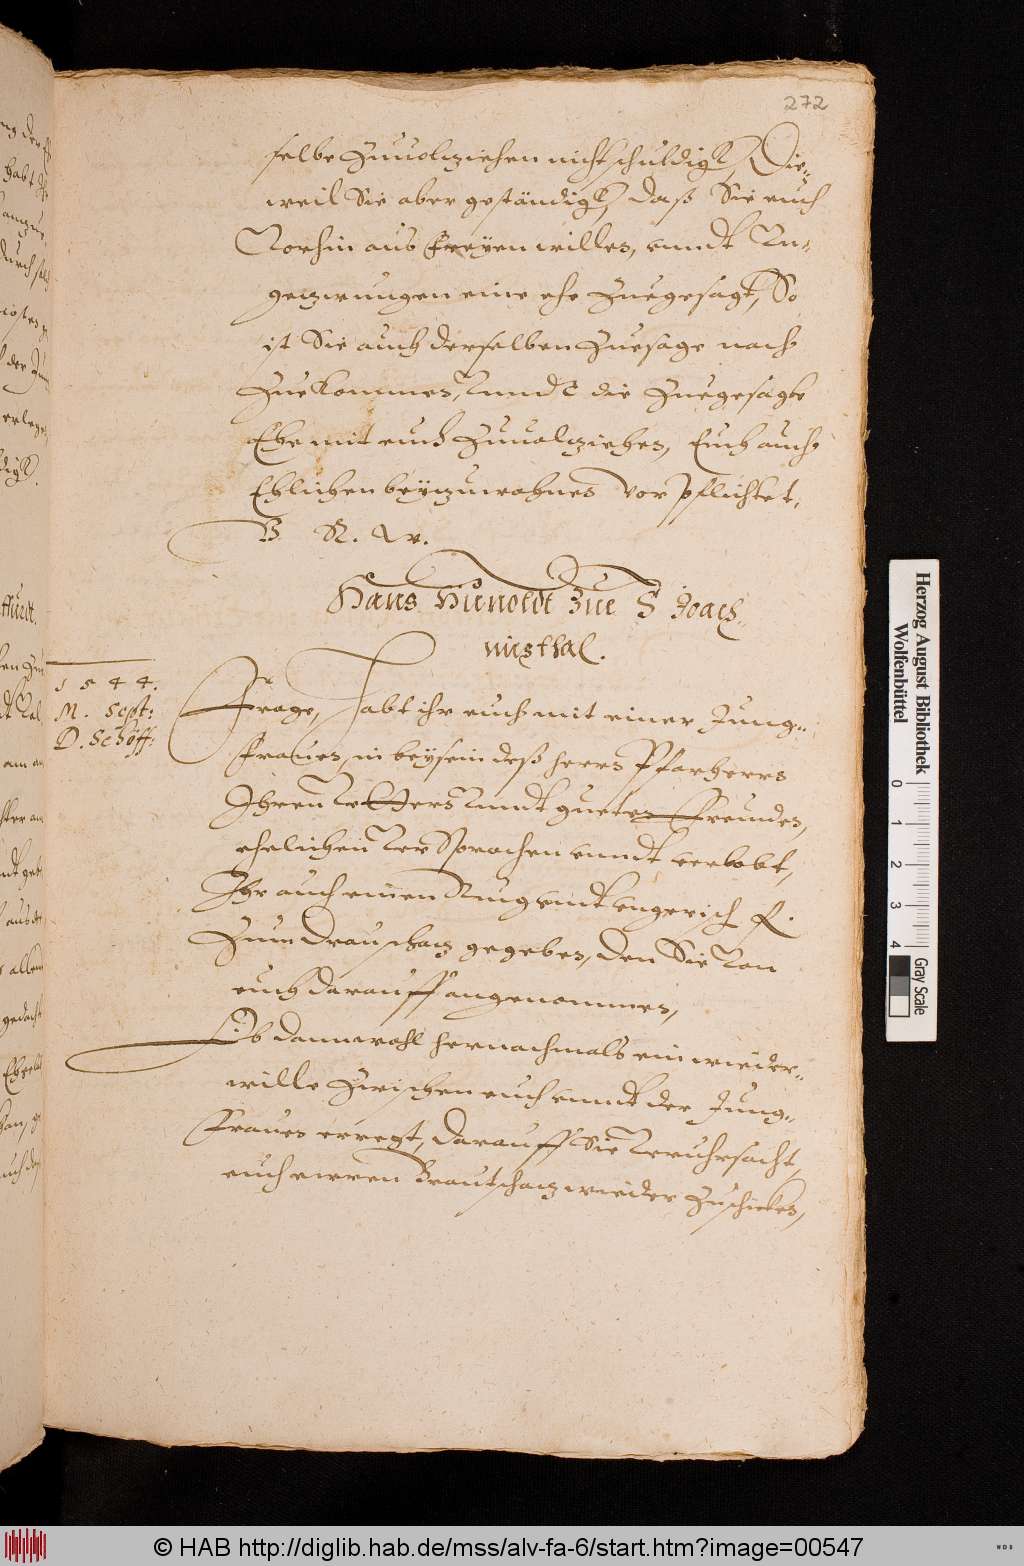 272
selbe Zuuolziehen nicht schuldigk, Die-
weil Sie aber geständigk, daß Sie euch
Vorhin aus freyen willen, vnndt Vn-
gezwungen eine ehe Zuegesagt, So
ist Sie auch derselben Zuesage nach
Zuekommen, Vnndt die Zuegesagte
Ehe mit euch Zuuolziehen, Euch auch
Ehlichen beyzuwohnen vorpflichtet,
V. R. w.
Hans Hunoldt Zue S Joach-
misthal.
1544.
M. Sept:
D. Schöff:
Frage, Habt ihr euch mit einer Jung-
frauen, in beysein deß herrn Pfarherrs
Ihren Veltern Vnndt gueten Freunden,
ehelichen Versprochen vnndt verlobt,
Ihr auch einen Vngerisch fl.
Zum Drauschatz gegeben, den Sie Von
euch darauff angenommen,
Ob dannwohl hernachmals ein wieder-
wille Zwischen euch vnndt der Jung-
frauen erregt, darauff Sie Veruhrsacht,
euch ewren Brautschatz wieder Zuschicken,
Herzog August Bibliothek
Wolfenbüttel
0 1 2 3 4
Gray Scale
© HAB http://diglib.hab.de/mss/alv-fa-6/start.htm?image=00547